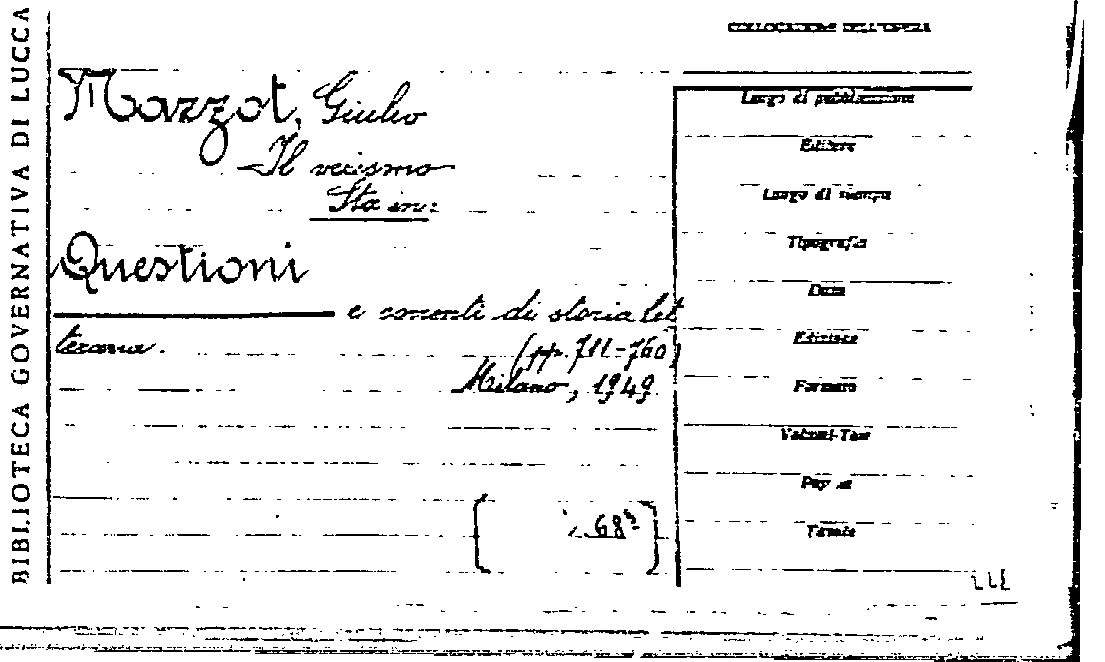 BIBLIOTECA GOVERNATIVA DI LUCCA
COLLOCAZIONE DELL'OPERA
Mazzot, Giulio
Il verismo
Sta in:
Questioni
e correnti di storia let
teraria.
(pp. 711-760)
Milano, 1949
[ 68 ]
Luogo di pubblicazione
Editore
Luogo di stampa
Tipografia
Data
Edizione
Formato
Volumi-Tomi
Pag.
Tavole